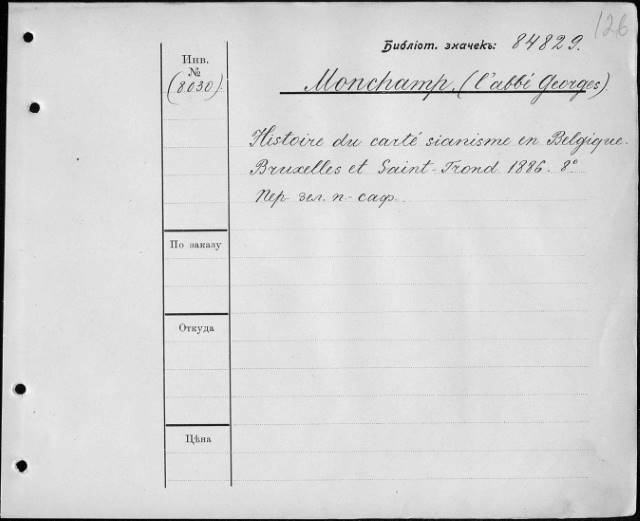 126
Библіот. значекъ: 84829.
Инв.
№
(8030).
Monchamp, (l'abbé Georges)
Histoire du carté sianisme en Belgique.
Bruxelles et Saint-Trond 1886. 8°
Пер. зел. п-саф.
По заказу
Откуда
Цѣна